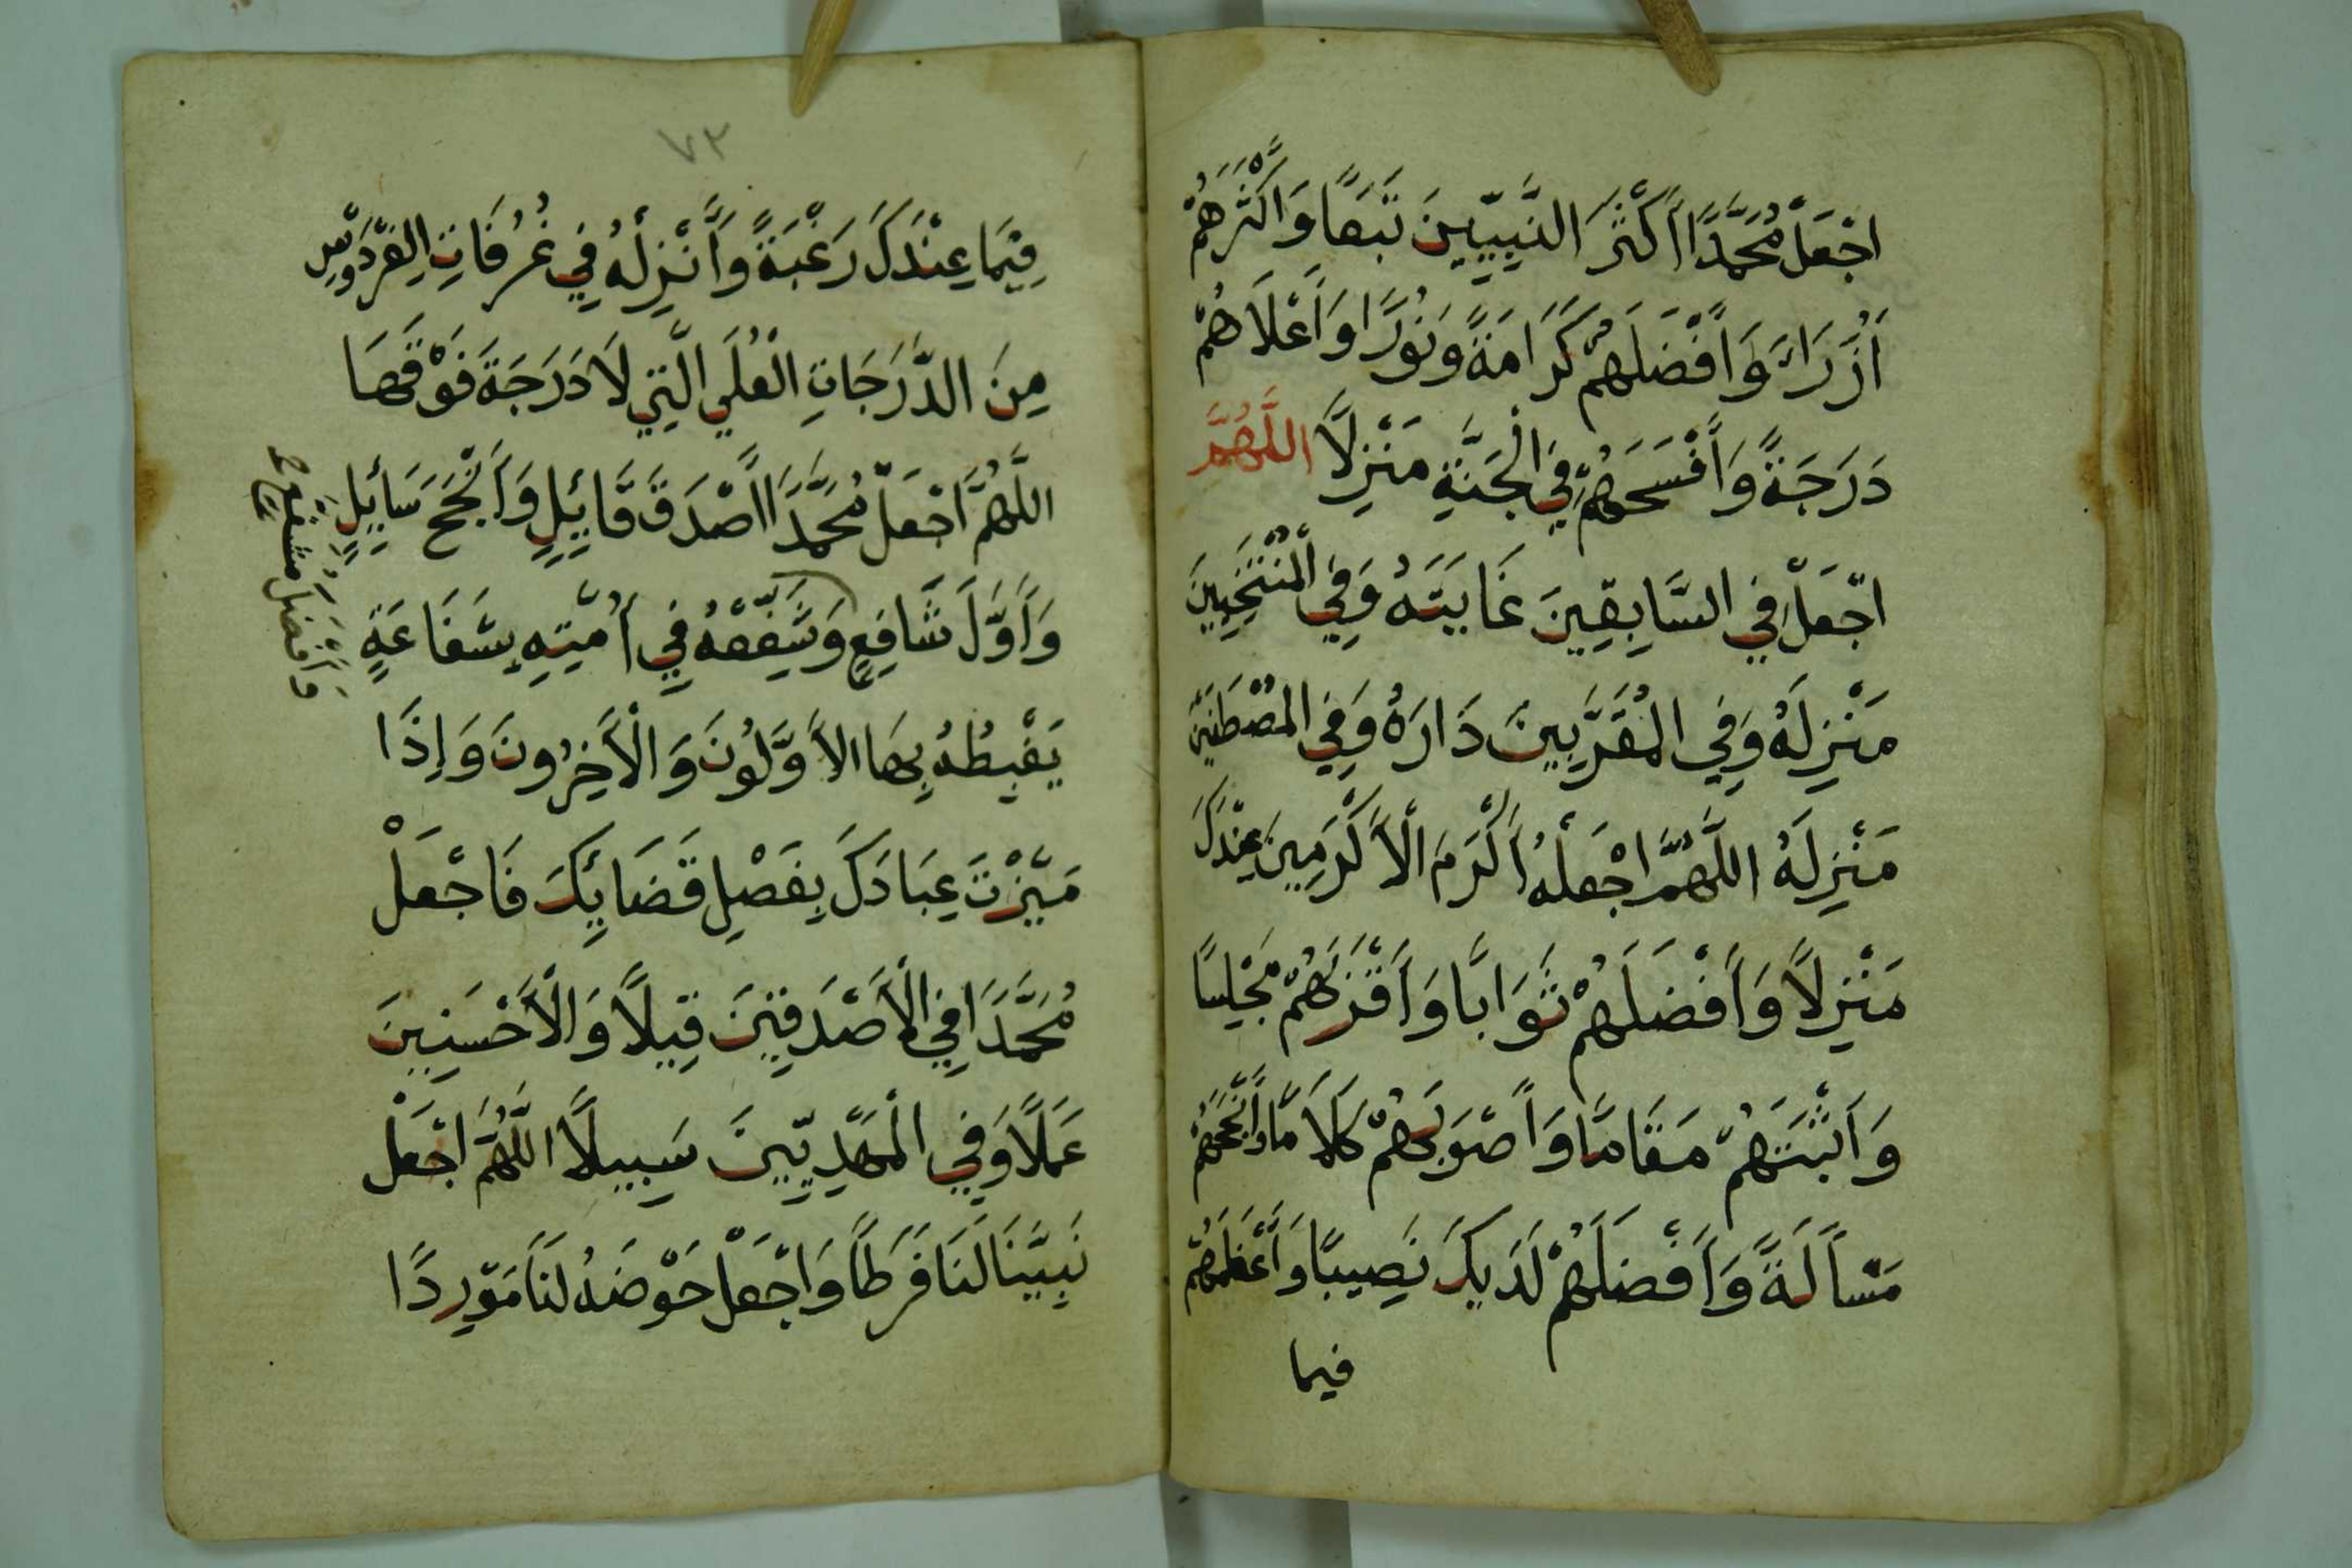 اجْعَلْ مُحَمَّدًا أَكْثَرَ النَّبِيِّينَ تَبَعًا وَأَكْثَرَهُمْ
أُزَرَاءَ وَأَفْضَلَهُمْ كَرَامَةً وَنُورًا وَأَعْلَاهُمْ
دَرَجَةً وَأَفْسَحَهُمْ فِي الْجَنَّةِ مَنْزِلًا اللَّهُمَّ
اجْعَلْ فِي السَّابِقِينَ غَايَتَهُ وَفِي الْمُنْتَخَبِينَ
مَنْزِلَهُ وَفِي الْمُقَرَّبِينَ دَارَهُ وَفِي الْمُصْطَفَيْنَ
مَنْزِلَهُ اللَّهُمَّ اجْعَلْهُ أَكْرَمَ الْأَكْرَمِينَ عِنْدَكَ
مَنْزِلًا وَأَفْضَلَهُمْ ثَوَابًا وَأَقْرَبَهُمْ مَجْلِسًا
وَأَثْبَتَهُمْ مَقَامًا وَأَصْوَبَهُمْ كَلَامًا وَأَنْجَحَهُمْ
مَسْأَلَةً وَأَفْضَلَهُمْ لَدَيْكَ نَصِيبًا وَأَعْظَمَهُمْ
فيما
٧٣
فِيمَا عِنْدَكَ رَغْبَةً وَأَنْزِلْهُ فِي غُرُفَاتِ الْفِرْدَوْسِ
مِنَ الدَّرَجَاتِ الْعُلَى الَّتِي لَا دَرَجَةَ فَوْقَهَا
اللَّهُمَّ اجْعَلْ مُحَمَّدًا أَصْدَقَ قَائِلٍ وَأَنْجَحَ سَائِلٍ
وَأَوَّلَ شَافِعٍ وَشَفِّعْهُ فِي أُمَّتِهِ بِشَفَاعَةٍ
وَأَفْضَلَ مُشَفَّعٍ صح
يَغْبِطُهُ بِهَا الْأَوَّلُونَ وَالْآخِرُونَ وَإِذَا
مَيَّزْتَ عِبَادَكَ بِفَصْلِ قَضَائِكَ فَاجْعَلْ
مُحَمَّدًا فِي الْأَصْدَقِينَ قِيلًا وَالْأَحْسَنِينَ
عَمَلًا وَفِي الْمَهْدِيِّينَ سَبِيلًا اللَّهُمَّ اجْعَلْ
نَبِيَّنَا لَنَا فَرَطًا وَاجْعَلْ حَوْضَهُ لَنَا مَوْرِدًا